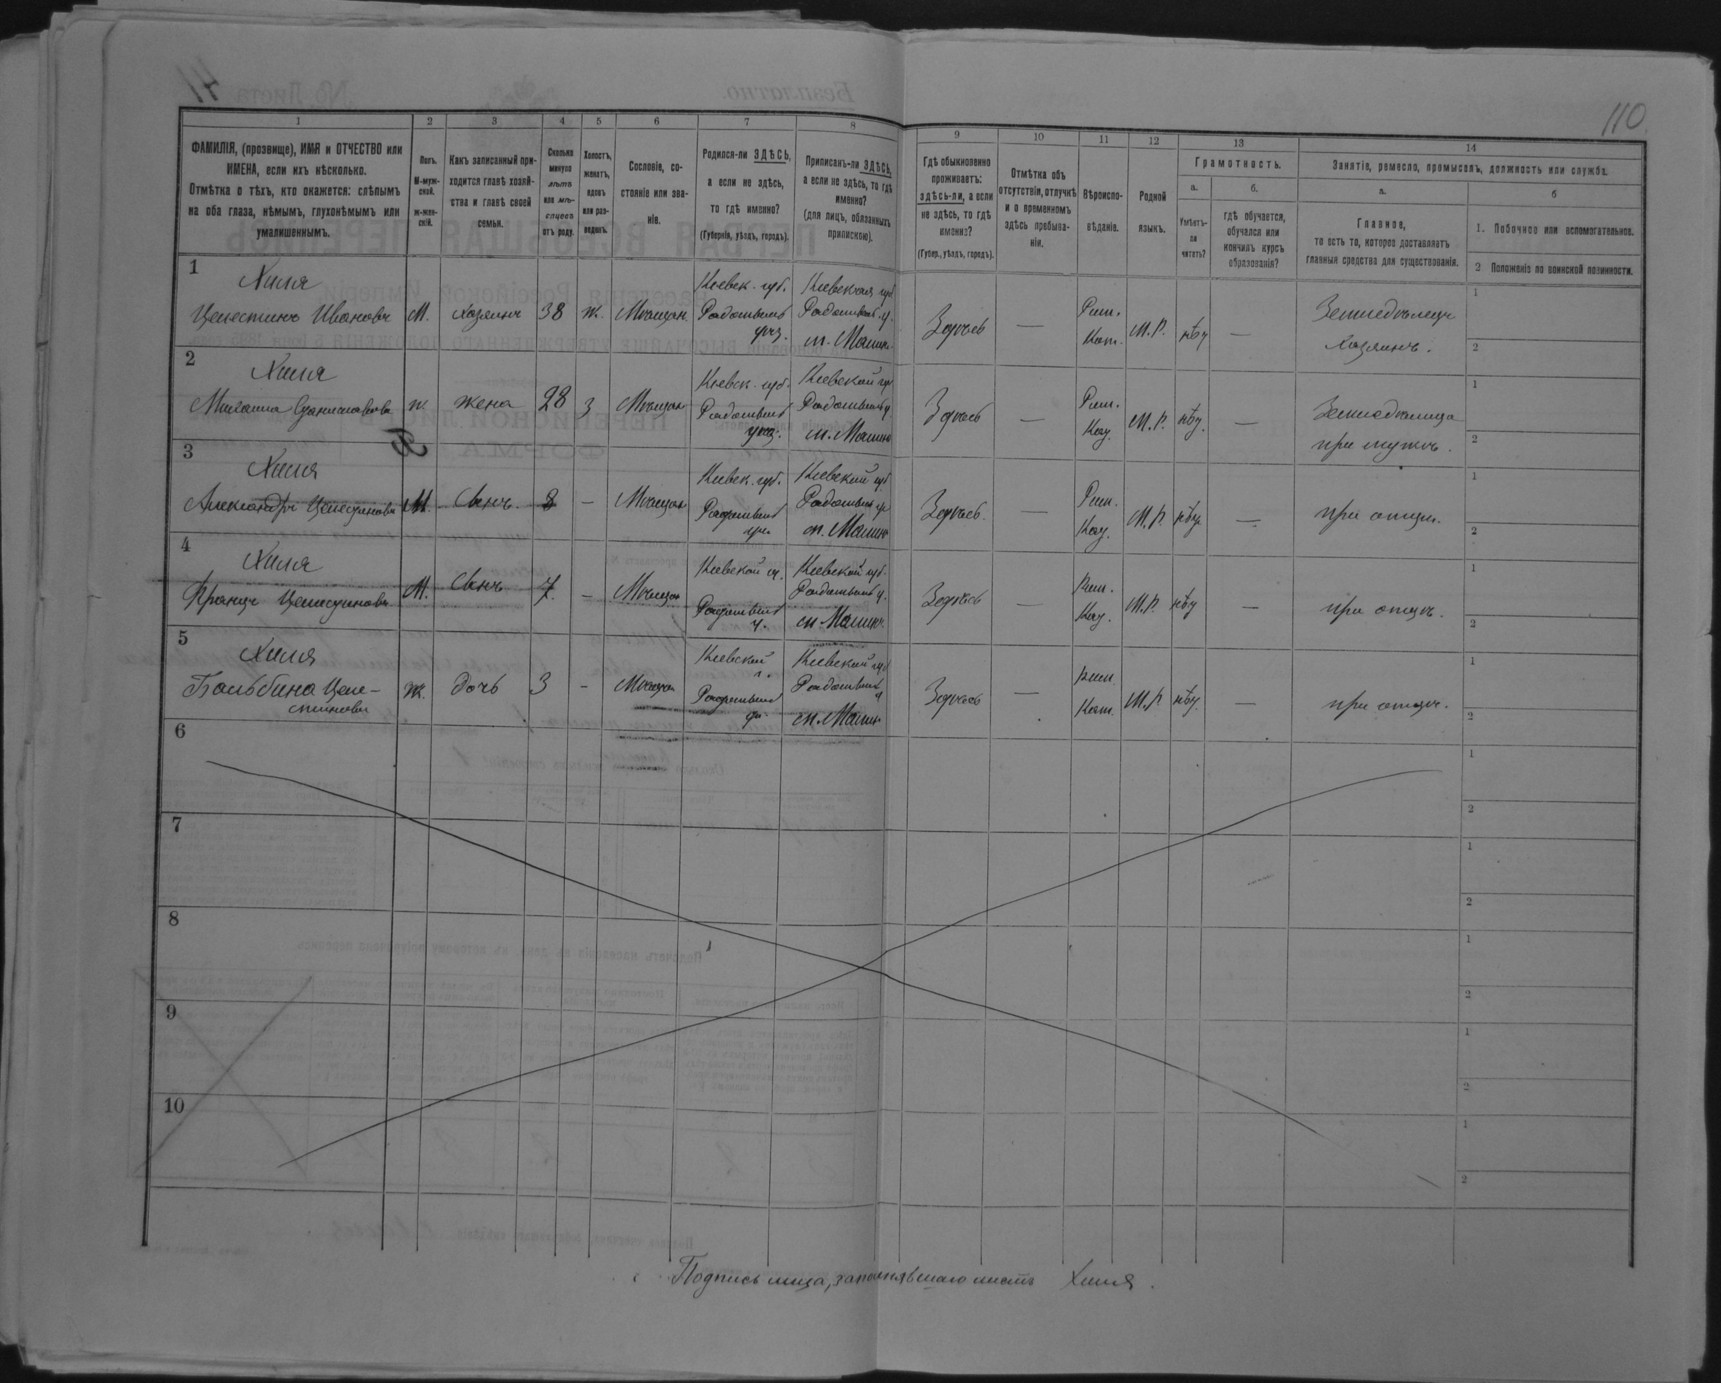 41
110
1 2 3 4 5 6 7 8 9 10 11 12 13 14
ФАМИЛІЯ, (прозвище), ИМЯ и ОТЧЕСТВО или
ИМЕНА, если ихъ нѣсколько.
Отмѣтка о тѣхъ, кто окажется: слѣпымъ
на оба глаза, нѣмымъ, глухонѣмымъ или
умалишеннымъ.
Полъ.
М-муж-
ской.
ж-жен-
скій.
Какъ записанный при-
ходится главѣ хозяй-
ства и главѣ своей
семьи.
Сколько
минуло
лѣтъ
или мѣ-
сяцевъ
отъ роду.
Холостъ,
женатъ,
вдовъ
или раз-
веденъ.
Сословіе, со-
стояніе или зва-
ніе.
Родился-ли ЗДѢСЬ,
а если не здѣсь,
то гдѣ именно?
(Губернія, уѣздъ, городъ).
Приписанъ-ли ЗДѢСЬ,
а если не здѣсь, то гдѣ
именно?
(для лицъ, обязанныхъ
припискою).
Гдѣ обыкновенно
проживаетъ:
здѣсь-ли, а если
не здѣсь, то гдѣ
именно?
(Губер., уѣздъ, городъ).
Отмѣтка объ
отсутствіи, отлучкѣ
и о временномъ
здѣсь пребыва-
ніи.
Вѣроиспо-
вѣданіе.
Родной
языкъ.
Грамотность.
а.
Умѣетъ-
ли
читать?
б.
гдѣ обучается,
обучался или
кончилъ курсъ
образованія?
Занятіе, ремесло, промыселъ, должность или служба.
а.
Главное,
то есть то, которое доставляетъ
главныя средства для существованія.
б
1. Побочное или вспомогательное.
2 Положеніе по воинской повинности.
1
Хиля
Целестинъ Ивановъ М. хозяинъ 38 ж. Мѣщан.
Кіевск. губ.
Радомысль
уѣз.
Кіевская губ
Радомысль. у.
м. Малин.
Здѣсь — Рим. Кат. М.Р. нѣту — Земледѣлецъ
Хозяинъ.
1
2
2
Хиля
ж. жена 28 з Мѣщан
Кіевск. губ.
Радомысль
уѣз.
Кіевской гу
Радомысль у
м. Малин
Здѣсь — Рим. Кат. М.Р. нѣту. — Земледѣлица
при мужѣ.
1
2
3
Хиля
Александръ Целестиновъ М. Сынъ. 8 — Мѣщан
Кіевск. губ.
Радомысль
Кіевской губ
Радомысль у
м. Малин
Здѣсь. — Рим. Кат. М.Р. нѣту — при отцѣ.
1
2
4
Хиля
Францъ Целестиновъ М. Сынъ 7. — Мѣщан
Кіевской г.
Радомысль
у.
Кіевской губ.
Радомысль у.
м Малин.
Здѣсь — Рим. Кат. М.Р. нѣту — при отцѣ.
1
2
5
Хиля
Бальбина Целе-
стинова ж. дочь 3 - Мѣщан
Кіевской
г.
Радомысль
Кіевской губ
Радомысль
у
м. Малин
Здѣсь — Рим. Кат. М.Р. нѣту. — при отцѣ.
1
2
6
1
2
7
1
2
8
1
2
9
1
2
10
1
2
Подпись лица, заполнявшаго листъ Хиля.